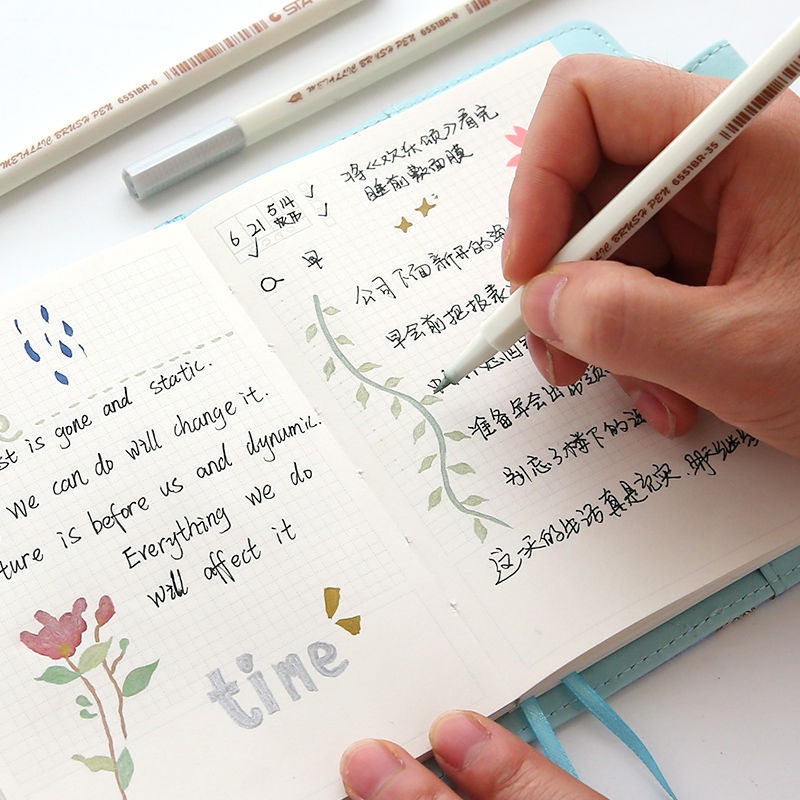 METALLIC BRUSH PEN 6551BR-6 STA
METALLIC BRUSH PEN 6551BR-6
BRUSH PEN 6551BR-35
st is gone and static.
We can do will change it.
ture is before us and dynamic.
Everything we do
will affect it
time
将《欢乐颂》看完
睡前敷面膜
6 21 514
早
公司下面新开的
早会前把报表
准备年会出席
别忘了楼下的
这一天的生活真是充实,明天继续